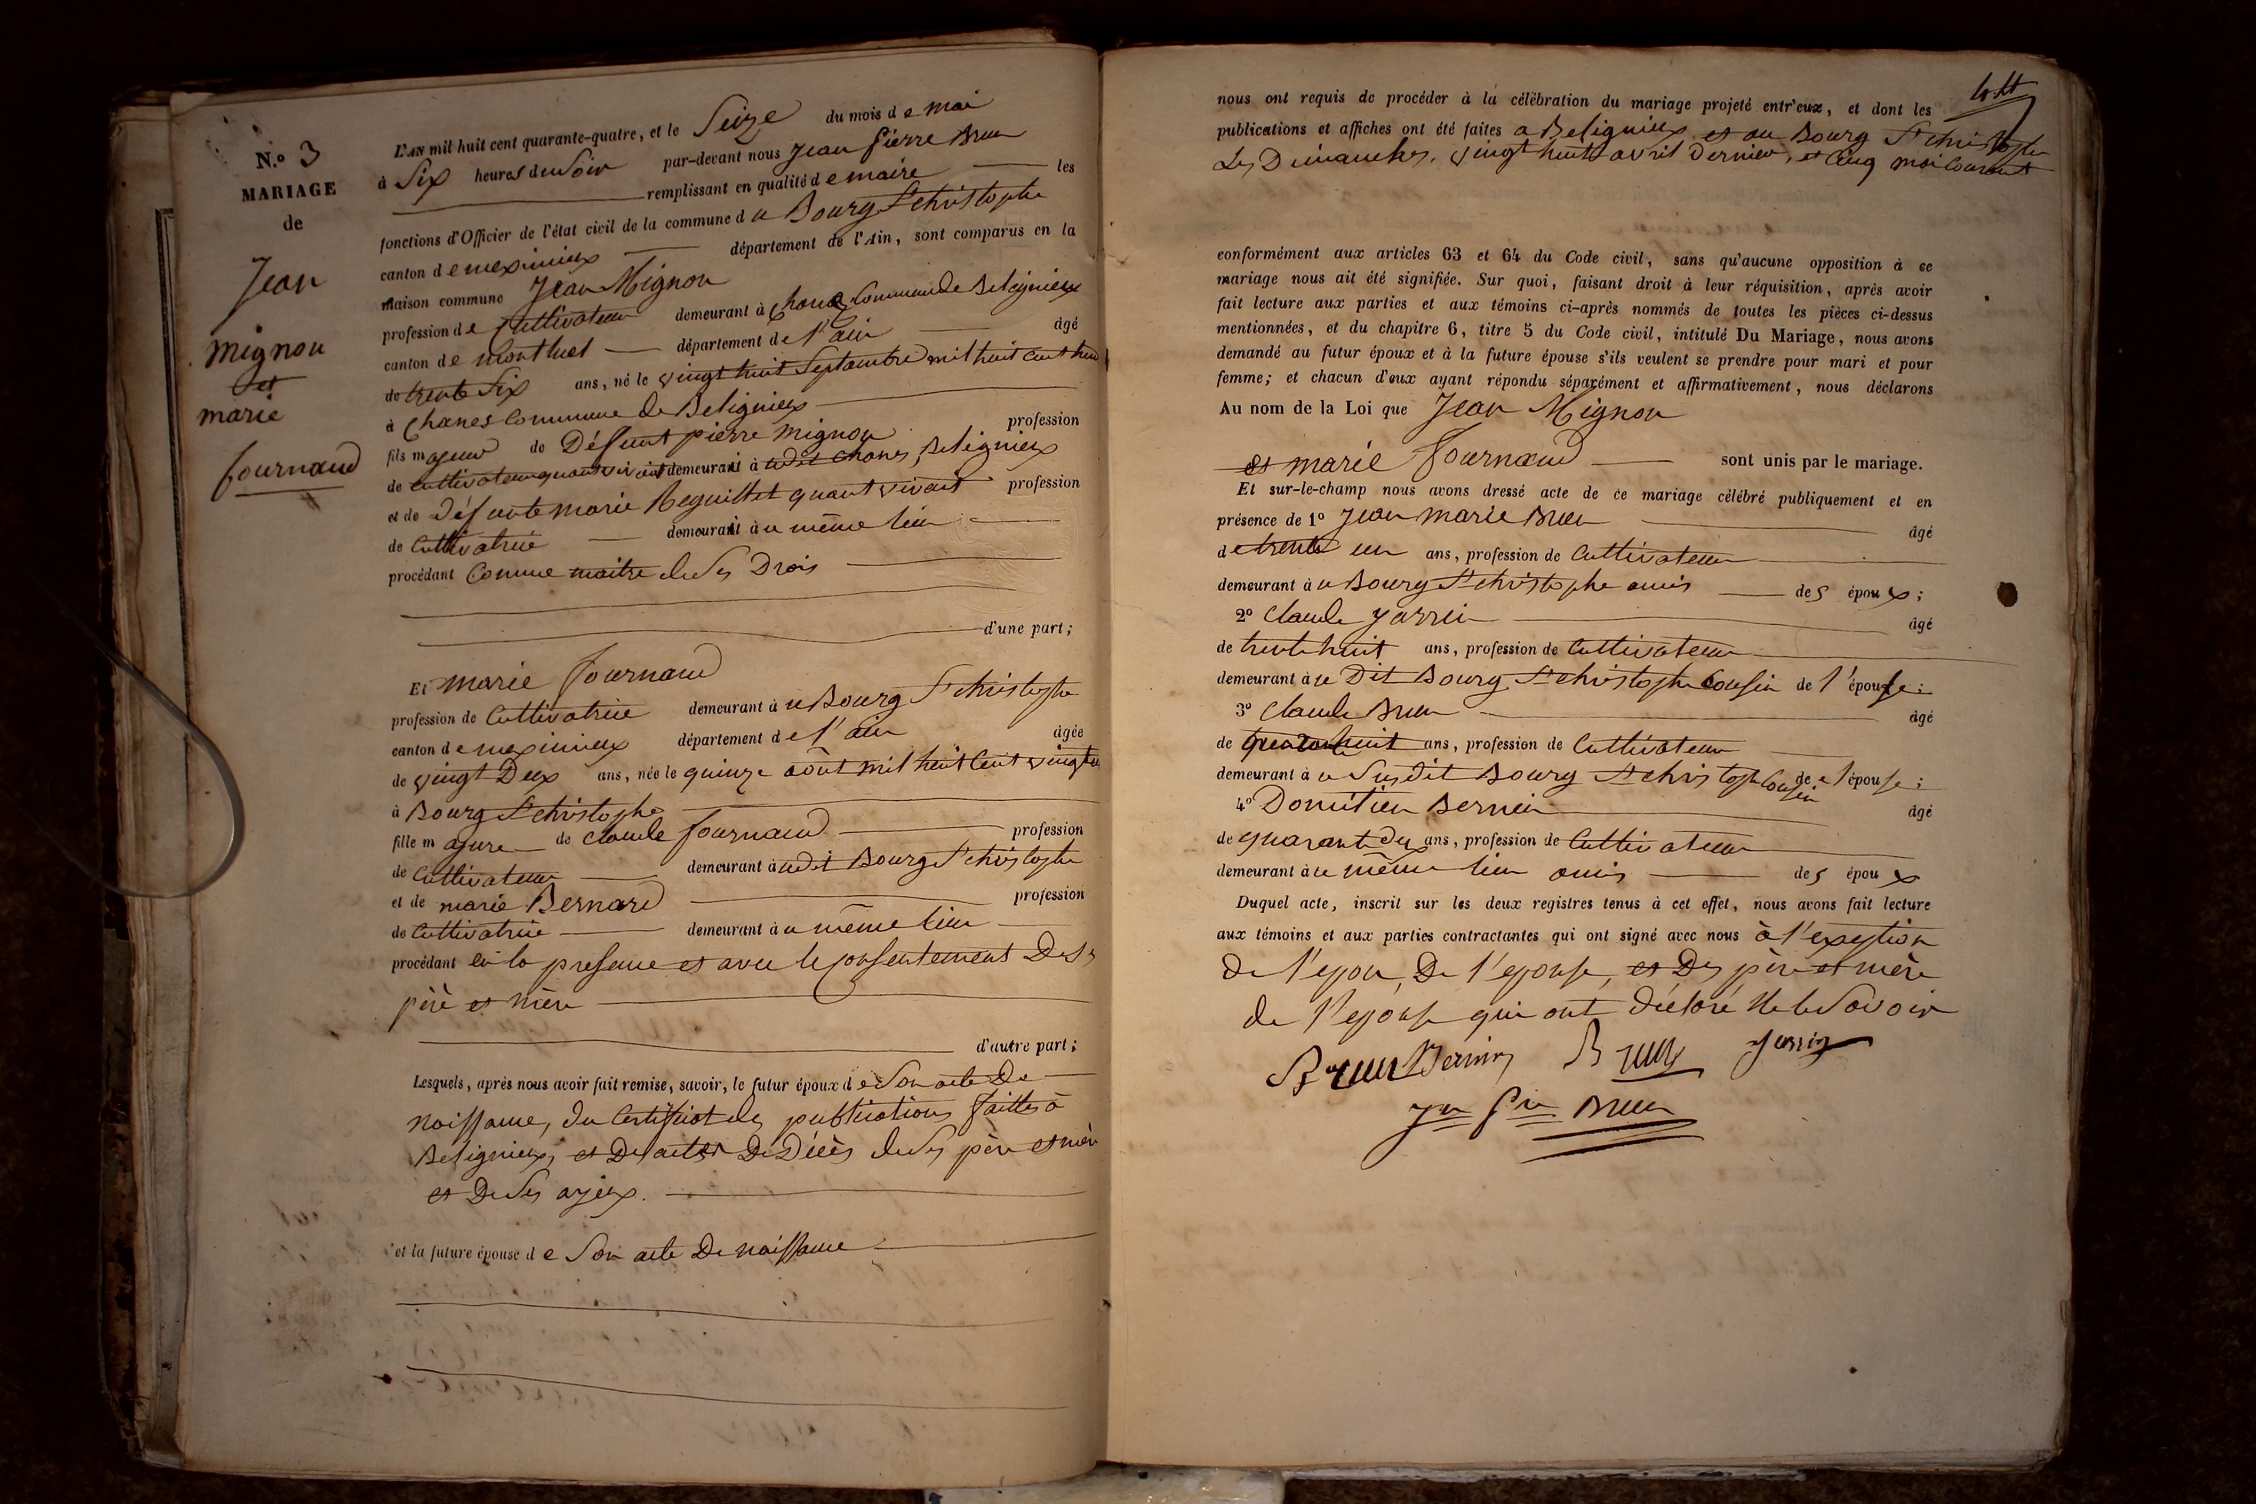 N.º 3
MARIAGE
de
Jean
Mignon
et
marie
fournand
L'AN mil huit cent quarante-quatre, et le Seize du mois de mai
à Six heures du Soir par-devant nous Jean Pierre Brun
remplissant en qualité de maire les
fonctions d'Officier de l'état civil de la commune du Bourg St christophe
canton de meximieux département de l'Ain, sont comparus en la
maison commune Jean Mignon
profession de Cultivateur demeurant à chanes Commune de Beligneux
canton de Montluel département de l'ain âgé
de trente Six ans, né le vingt huit Septembre mil huit cent
à Chanes Commune de Beligneux
fils majeur de Défunt pierre Mignon profession
de Cultivateur quant vivait demeurant à udit chanes, Beligneux
et de défunte marie Reguillet quant vivait profession
de Cultivatrice demeurant à u même lieu
procédant Comme maitre de Ses Drois
d'une part;
Et marie fournand
profession de Cultivatrice demeurant à u Bourg St christophe
canton de meximieux département de l'ain âgée
de vingt Deux ans, née le quinze août mil huit Cent vingt
à Bourg St christophe
fille majure de claude fournand profession
de Cultivateur demeurant à udit Bourg St christophe
et de marie Bernard profession
de Cultivatrice demeurant à u même lieu
procédant en la presence et avec le consentement De Ses
père et mère
d'autre part;
Lesquels, après nous avoir fait remise, savoir, le futur époux de Son acte De
naissance, du Certificat des publications faittes à
Beligneux, et De actes De Décès de Ses père et mère
et De Ses ayeux.
et la future épouse de Son acte De naissance
nous ont requis de procéder à la célébration du mariage projeté entr'eux, et dont les
publications et affiches ont été faites a Beligneux et au Bourg St christophe
Les Dimanches, vingt huit avril dernier, et Cinq mai Courant
conformément aux articles 63 et 64 du Code civil, sans qu'aucune opposition à ce
mariage nous ait été signifiée. Sur quoi, faisant droit à leur réquisition, après avoir
fait lecture aux parties et aux témoins ci-après nommés de toutes les pièces ci-dessus
mentionnées, et du chapitre 6, titre 5 du Code civil, intitulé Du Mariage, nous avons
demandé au futur époux et à la future épouse s'ils veulent se prendre pour mari et pour
femme; et chacun d'eux ayant répondu séparément et affirmativement, nous déclarons
Au nom de la Loi que Jean Mignon
et marie fournand sont unis par le mariage.
Et sur-le-champ nous avons dressé acte de ce mariage célébré publiquement et en
présence de 1º Jean marie Brun âgé
de trente un ans, profession de Cultivateur
demeurant à u Bourg St christophe amis des époux;
2º Claude Jarrin âgé
de trente huit ans, profession de Cultivateur
demeurant à u Dit Bourg St christophe Cousin de l'épouse;
3º Claude Brun âgé
de ans, profession de Cultivateur
demeurant à u Susdit Bourg St christophe Cousin de l'épouse;
4º Domitien Bernin âgé
de quarante Six ans, profession de Cultivateur
demeurant à u même lieu amis des époux
Duquel acte, inscrit sur les deux registres tenus à cet effet, nous avons fait lecture
aux témoins et aux parties contractantes qui ont signé avec nous à l'exeption
De l'epoux, De l'epouse, et Des père et mère
de l'epouse qui ont déclaré Ne le Savoir
Brun Bernin Brun Jarrin
Jn Pre Brun